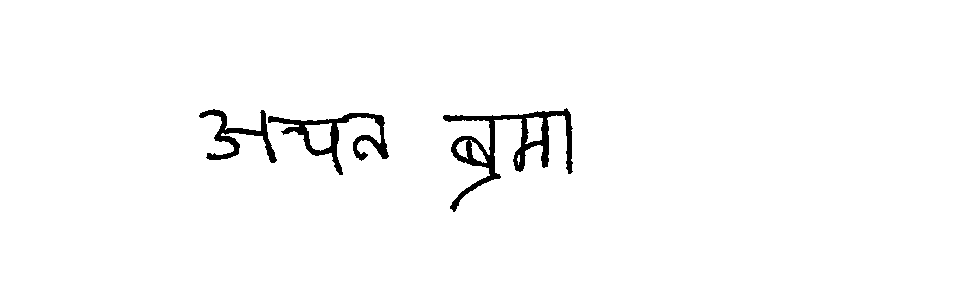 अचन ब्रमा